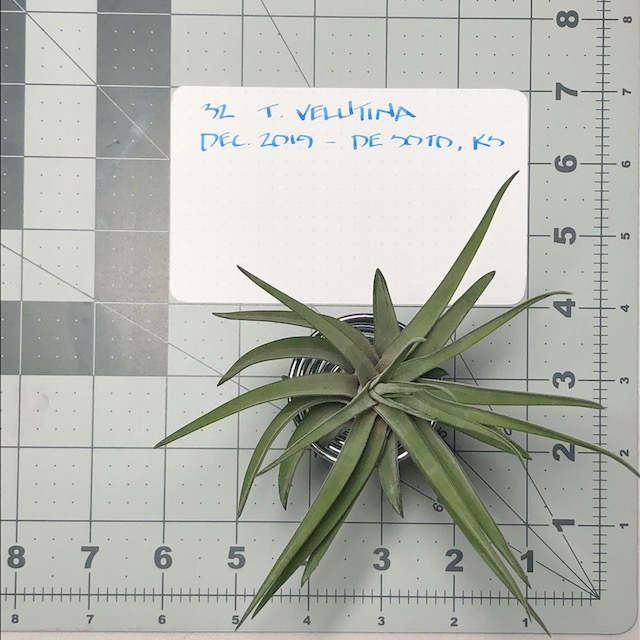 32 T. VELUTINA
DEC. 2019 - DE SOTO, KS
8
8
7
7
6
6
5
5
4
4
3
3
2
2
1
1
8 7 6 5 3 2 1
8 7 6 5 4 3 2 1